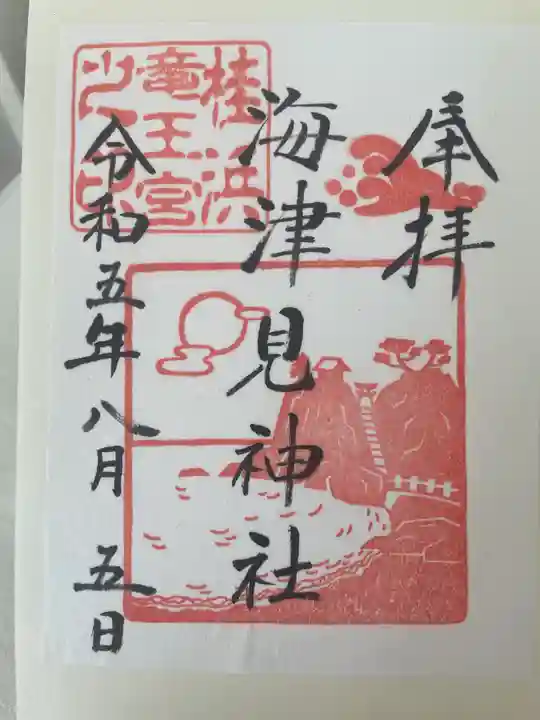 奉拝
海津見神社
令和五年八月 五日
桂浜
竜王宮
之印